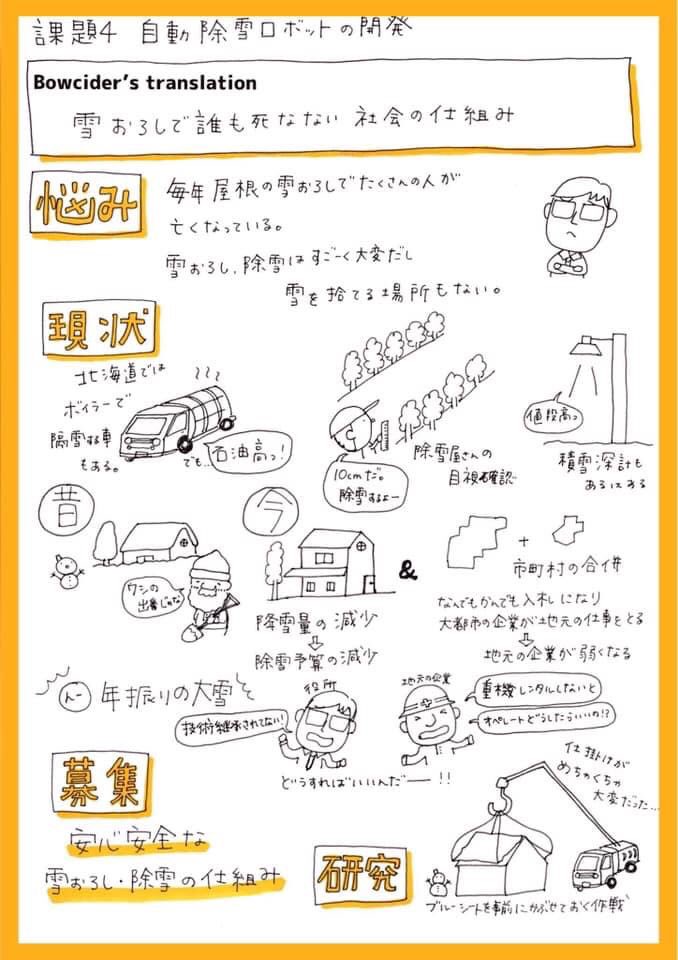 課題4 自動除雪ロボットの開発
Bowcider's translation
雪おろしで誰も死なない社会の仕組み
悩み
毎年屋根の雪おろしでたくさんの人が
亡くなっている。
雪おろし、除雪はすごーく大変だし
雪を捨てる場所もない。
現状
北海道では
ボイラーで
融雪する車
もある。
でも…
石油高っ!
10cmだ。
除雪するよー
除雪屋さんの
目視確認
値段高っ
積雪深計も
あるにはある
昔
ワシの
出番じゃな
今
降雪量の減少
⇩
除雪予算の減少
&
+
市町村の合併
なんでもかんでも入札になり
大都市の企業が地元の仕事をとる
⇩
地元の企業が弱くなる
ん十年振りの大雪
役所
技術継承されてない!
地元の企業
重機レンタルしないと
オペレートどうしたらいいの!?
どうすればいいんだー!!
募集
安心安全な
雪おろし・除雪の仕組み
研究
仕掛けが
めちゃくちゃ
大変だった…
ブルーシートを事前にかぶせておく作戦